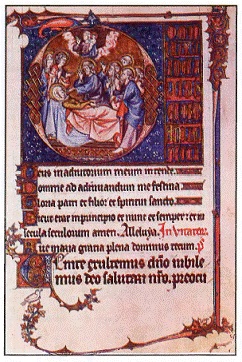 Deus in adiutorium meum intende
Domine ad adiuvandum me festina
Gloria patri et filio et spiritui sancto
Sicut erat in principio et nunc et semper et in
secula seculorum amen. Alleluya. Invitator
Ave maria gratia plena dominus tecum. p̄
Venite exultemus dño iubile
mus deo salutari nr̃o. preocu